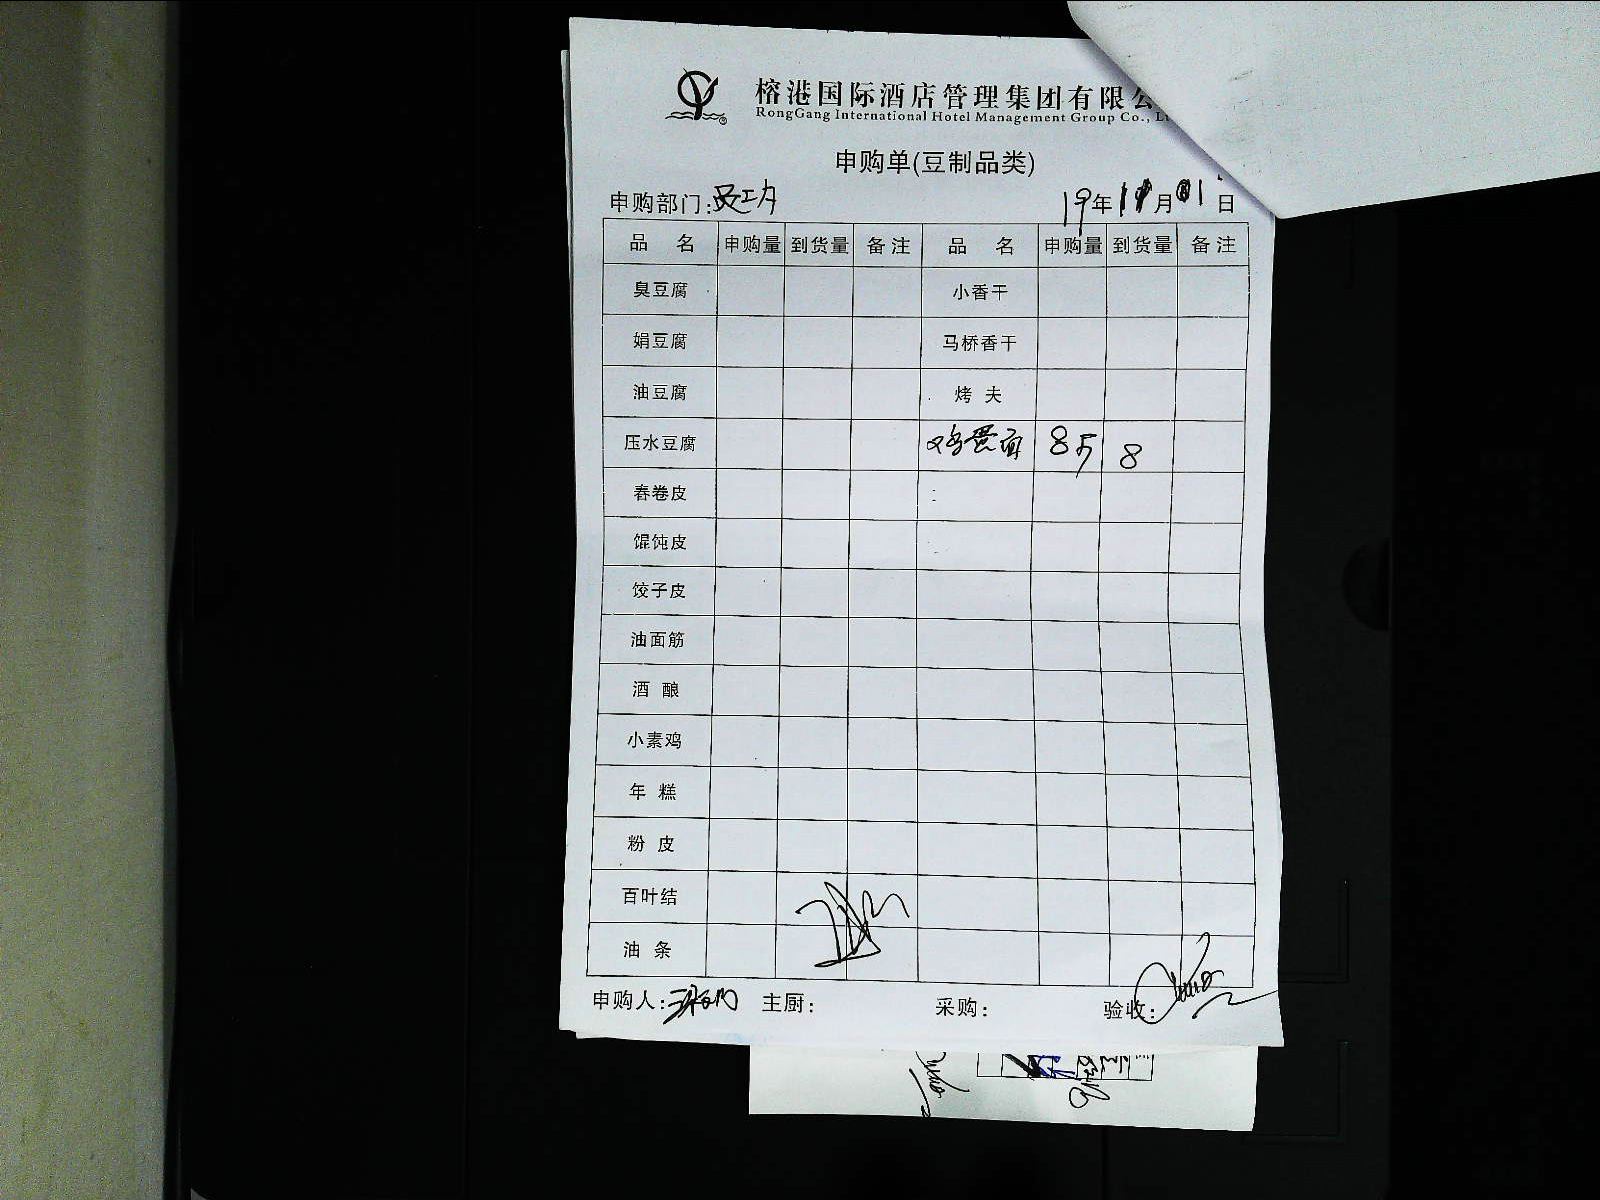 榕港国际酒店管理集团有限公
RongGang International Hotel Management Group Co., L
申购单(豆制品类)
申购部门:员工 19年11月01日
品 名 申购量 到货量 备注 品 名 申购量 到货量 备注
臭豆腐 小香干
娟豆腐 马桥香干
油豆腐 烤夫
压水豆腐 鸡蛋面 8斤 8
春卷皮
馄饨皮
饺子皮
油面筋
酒酿
小素鸡
年糕
粉皮
百叶结
油条
申购人: 主厨: 采购: 验收: